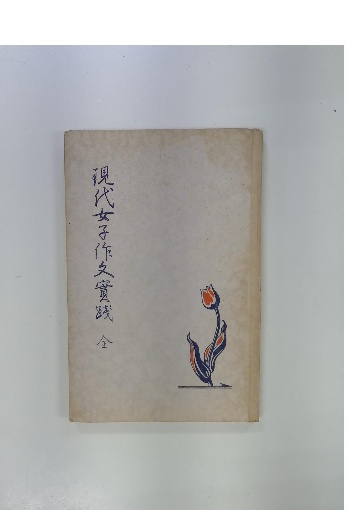 現代女子作文實踐 全